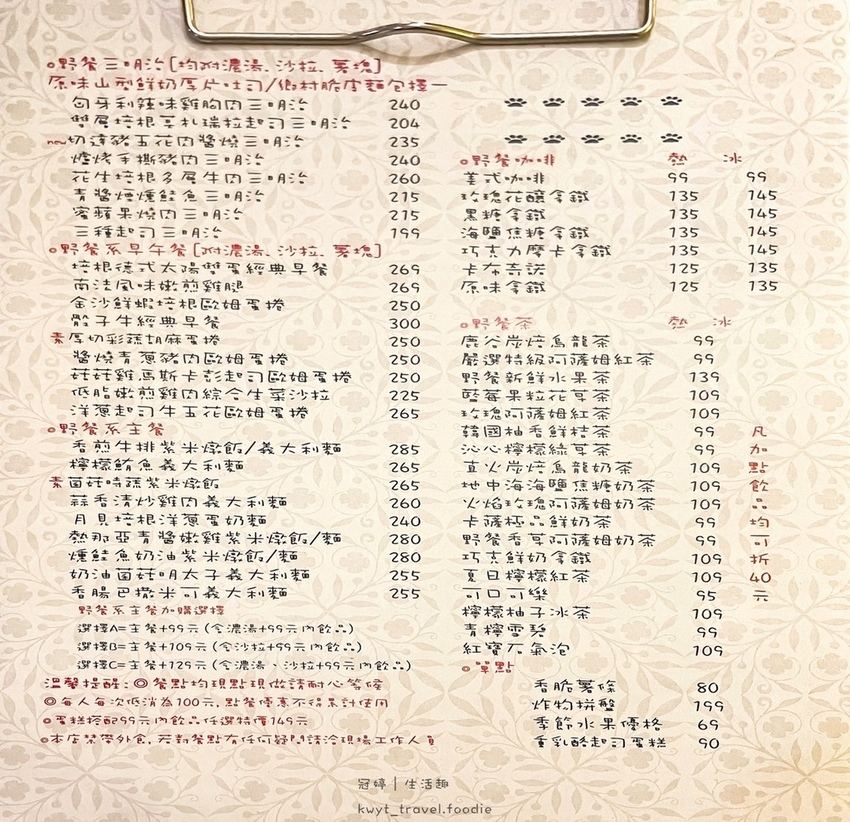 野餐三明治[均附濃湯、沙拉、薯塊]
原味山型鮮奶厚片吐司/鄉村脆皮麵包擇一
匈牙利辣味雞胸肉三明治 240
雙層培根莫札瑞拉起司三明治 204
new切達豬五花肉醬燒三明治 235
爐烤手撕豬肉三明治 240
花生培根多層牛肉三明治 260
青醬煙燻鮭魚三明治 215
蜜蘋果燒肉三明治 215
三種起司三明治 199
野餐系早午餐[附濃湯、沙拉、薯塊]
培根德式太陽雙蛋經典早餐 269
南法風味嫩煎雞腿 269
金沙鮮蝦培根歐姆蛋捲 250
骰子牛經典早餐 300
素厚切彩蔬胡麻蛋捲 250
醬燒青蔥豬肉歐姆蛋捲 250
菇菇雞馬斯卡彭起司歐姆蛋捲 250
低脂嫩煎雞肉綜合生菜沙拉 225
洋蔥起司牛五花歐姆蛋捲 265
野餐系主餐
香煎牛排紫米燉飯/義大利麵 285
檸檬鮪魚義大利麵 265
素菌菇時蔬紫米燉飯 265
蒜香清炒雞肉義大利麵 260
月見培根洋蔥蛋奶麵 240
熱那亞青醬嫩雞紫米燉飯/麵 280
燻鮭魚奶油紫米燉飯/麵 280
奶油菌菇明太子義大利麵 255
香腸巴撒米可義大利麵 255
野餐系主餐加購選擇
選擇A=主餐+99元(含濃湯+99元內飲品)
選擇B=主餐+109元(含沙拉+99元內飲品)
選擇C=主餐+129元(含濃湯、沙拉+99元內飲品)
溫馨提醒:◎餐點均現點現做請耐心等候
◎每人每次低消為100元,點餐優惠不得累計使用
蛋糕搭配99元內飲品任選特價149元
本店禁帶外食,若對餐點有任何疑問請洽現場工作人員
野餐咖啡 熱 冰
美式咖啡 99 99
玫瑰花釀拿鐵 135 145
黑糖拿鐵 135 145
海鹽焦糖拿鐵 135 145
巧克力摩卡拿鐵 135 145
卡布奇諾 125 135
原味拿鐵 125 135
野餐茶 熱 冰
鹿谷炭焙烏龍茶 99
嚴選特級阿薩姆紅茶 99
野餐新鮮水果茶 139
藍莓果粒花草茶 109
玫瑰阿薩姆紅茶 109
韓國柚香鮮桔茶 99
沁心檸檬綠茶 99
直火炭焙烏龍奶茶 109
地中海海鹽焦糖奶茶 109
火焰玫瑰阿薩姆奶茶 109
卡薩極品鮮奶茶 99
野餐香草阿薩姆奶茶 99
巧克鮮奶拿鐵 109
夏日檸檬紅茶 109
可口可樂 95
檸檬柚子冰茶 109
青檸雪碧 99
紅寶石氣泡 109
凡加點飲品均可折40元
單點
香脆薯條 80
炸物拼盤 199
季節水果優格 69
重乳酪起司蛋糕 90
冠婷|生活趣
kwyt_travel.foodie